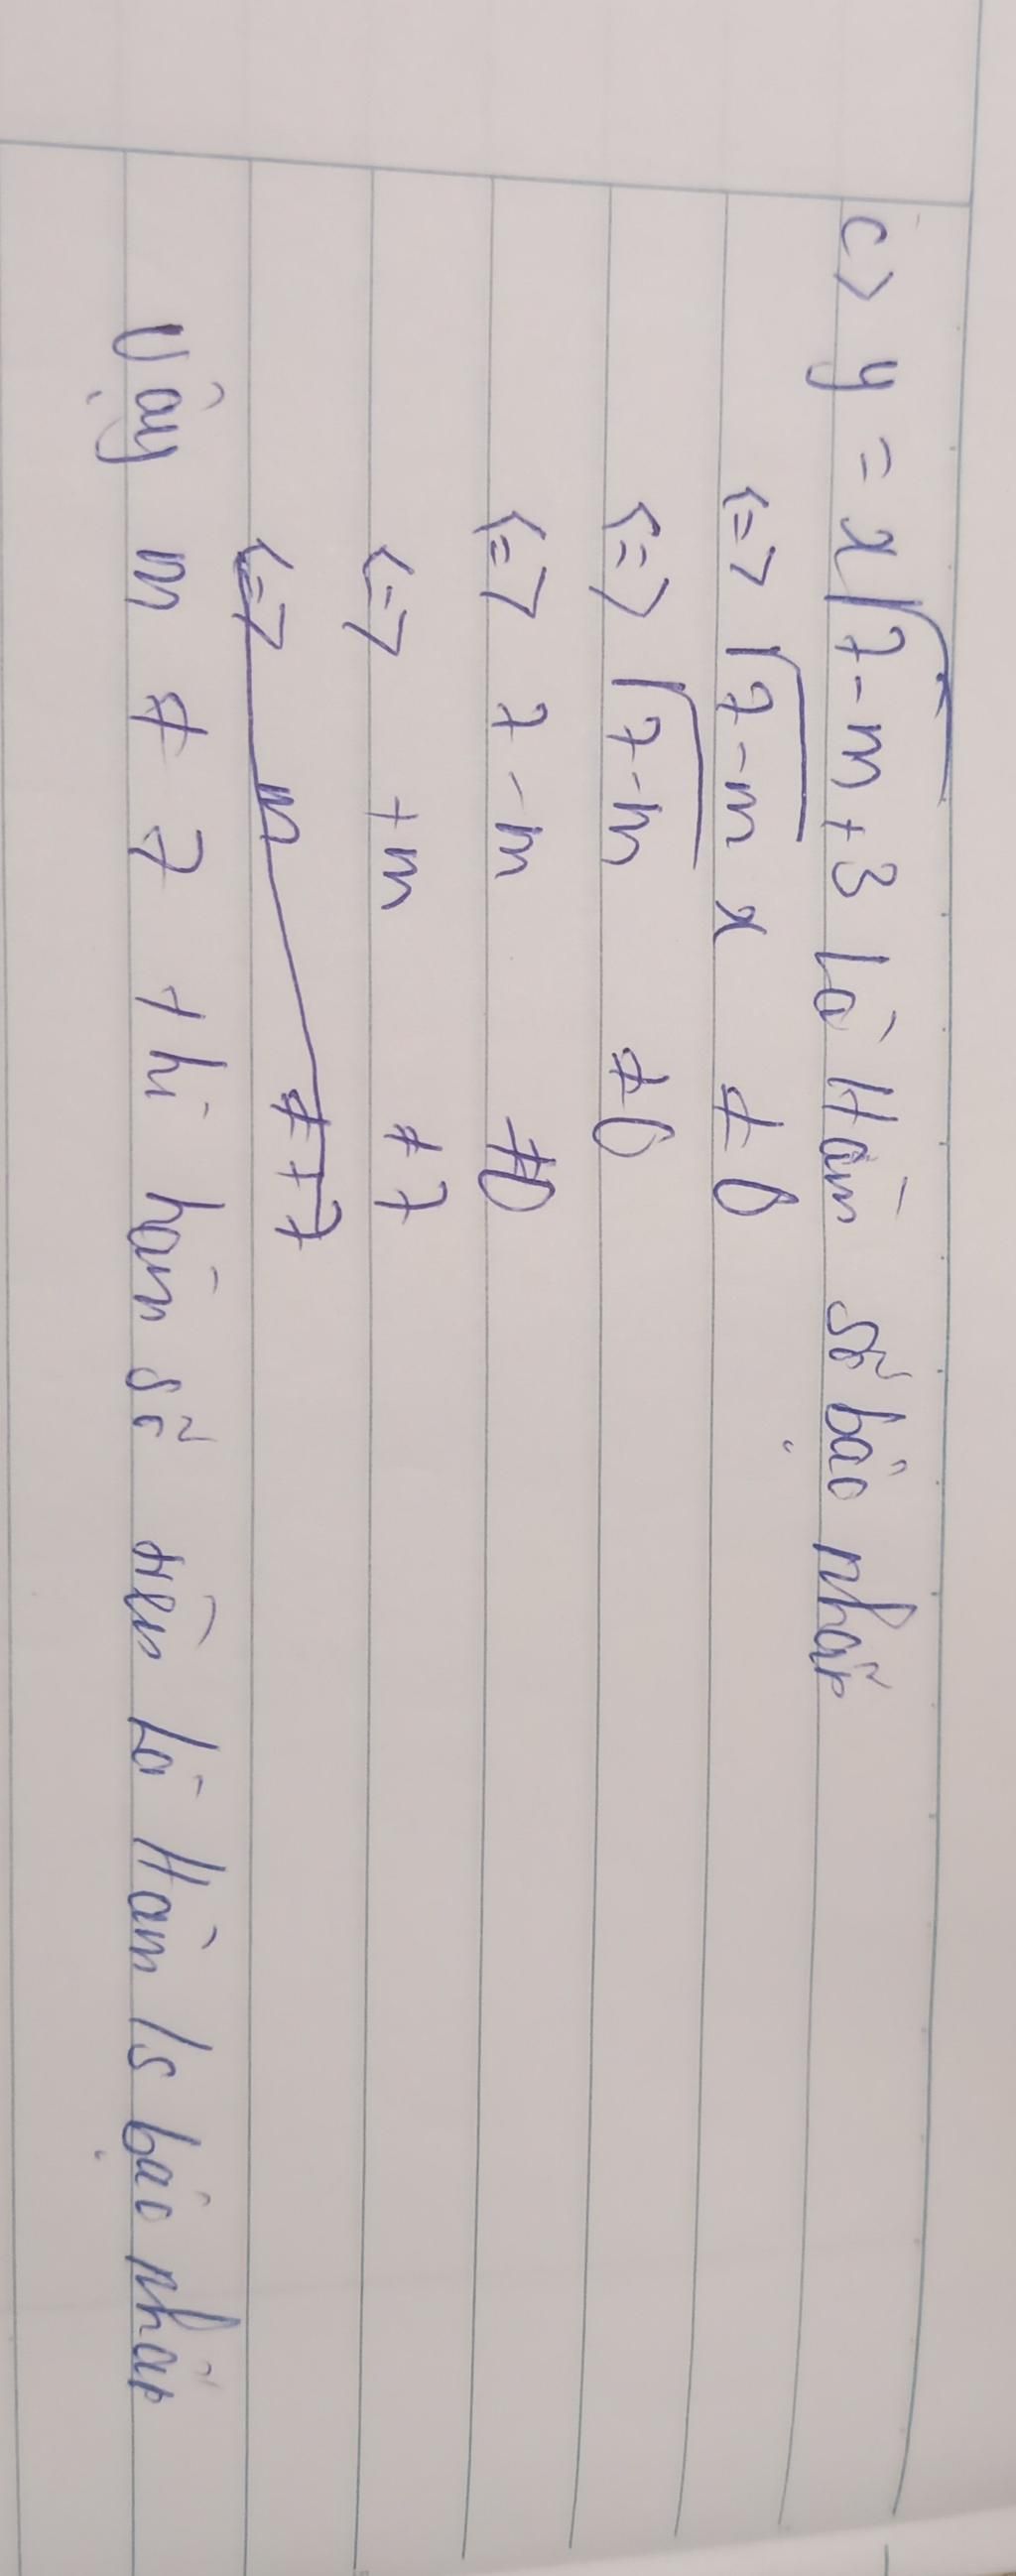 c> y = x√7-m + 3 là Hàm số bậc nhất
<=> √7-m x ≠ 0
<=> √7-m ≠ 0
<=> 7-m ≠ 0
<=> +m ≠ 7
<=> m ≠ +7
Vậy m ≠ 7 thì hàm số trên là Hàm /s bậc nhất